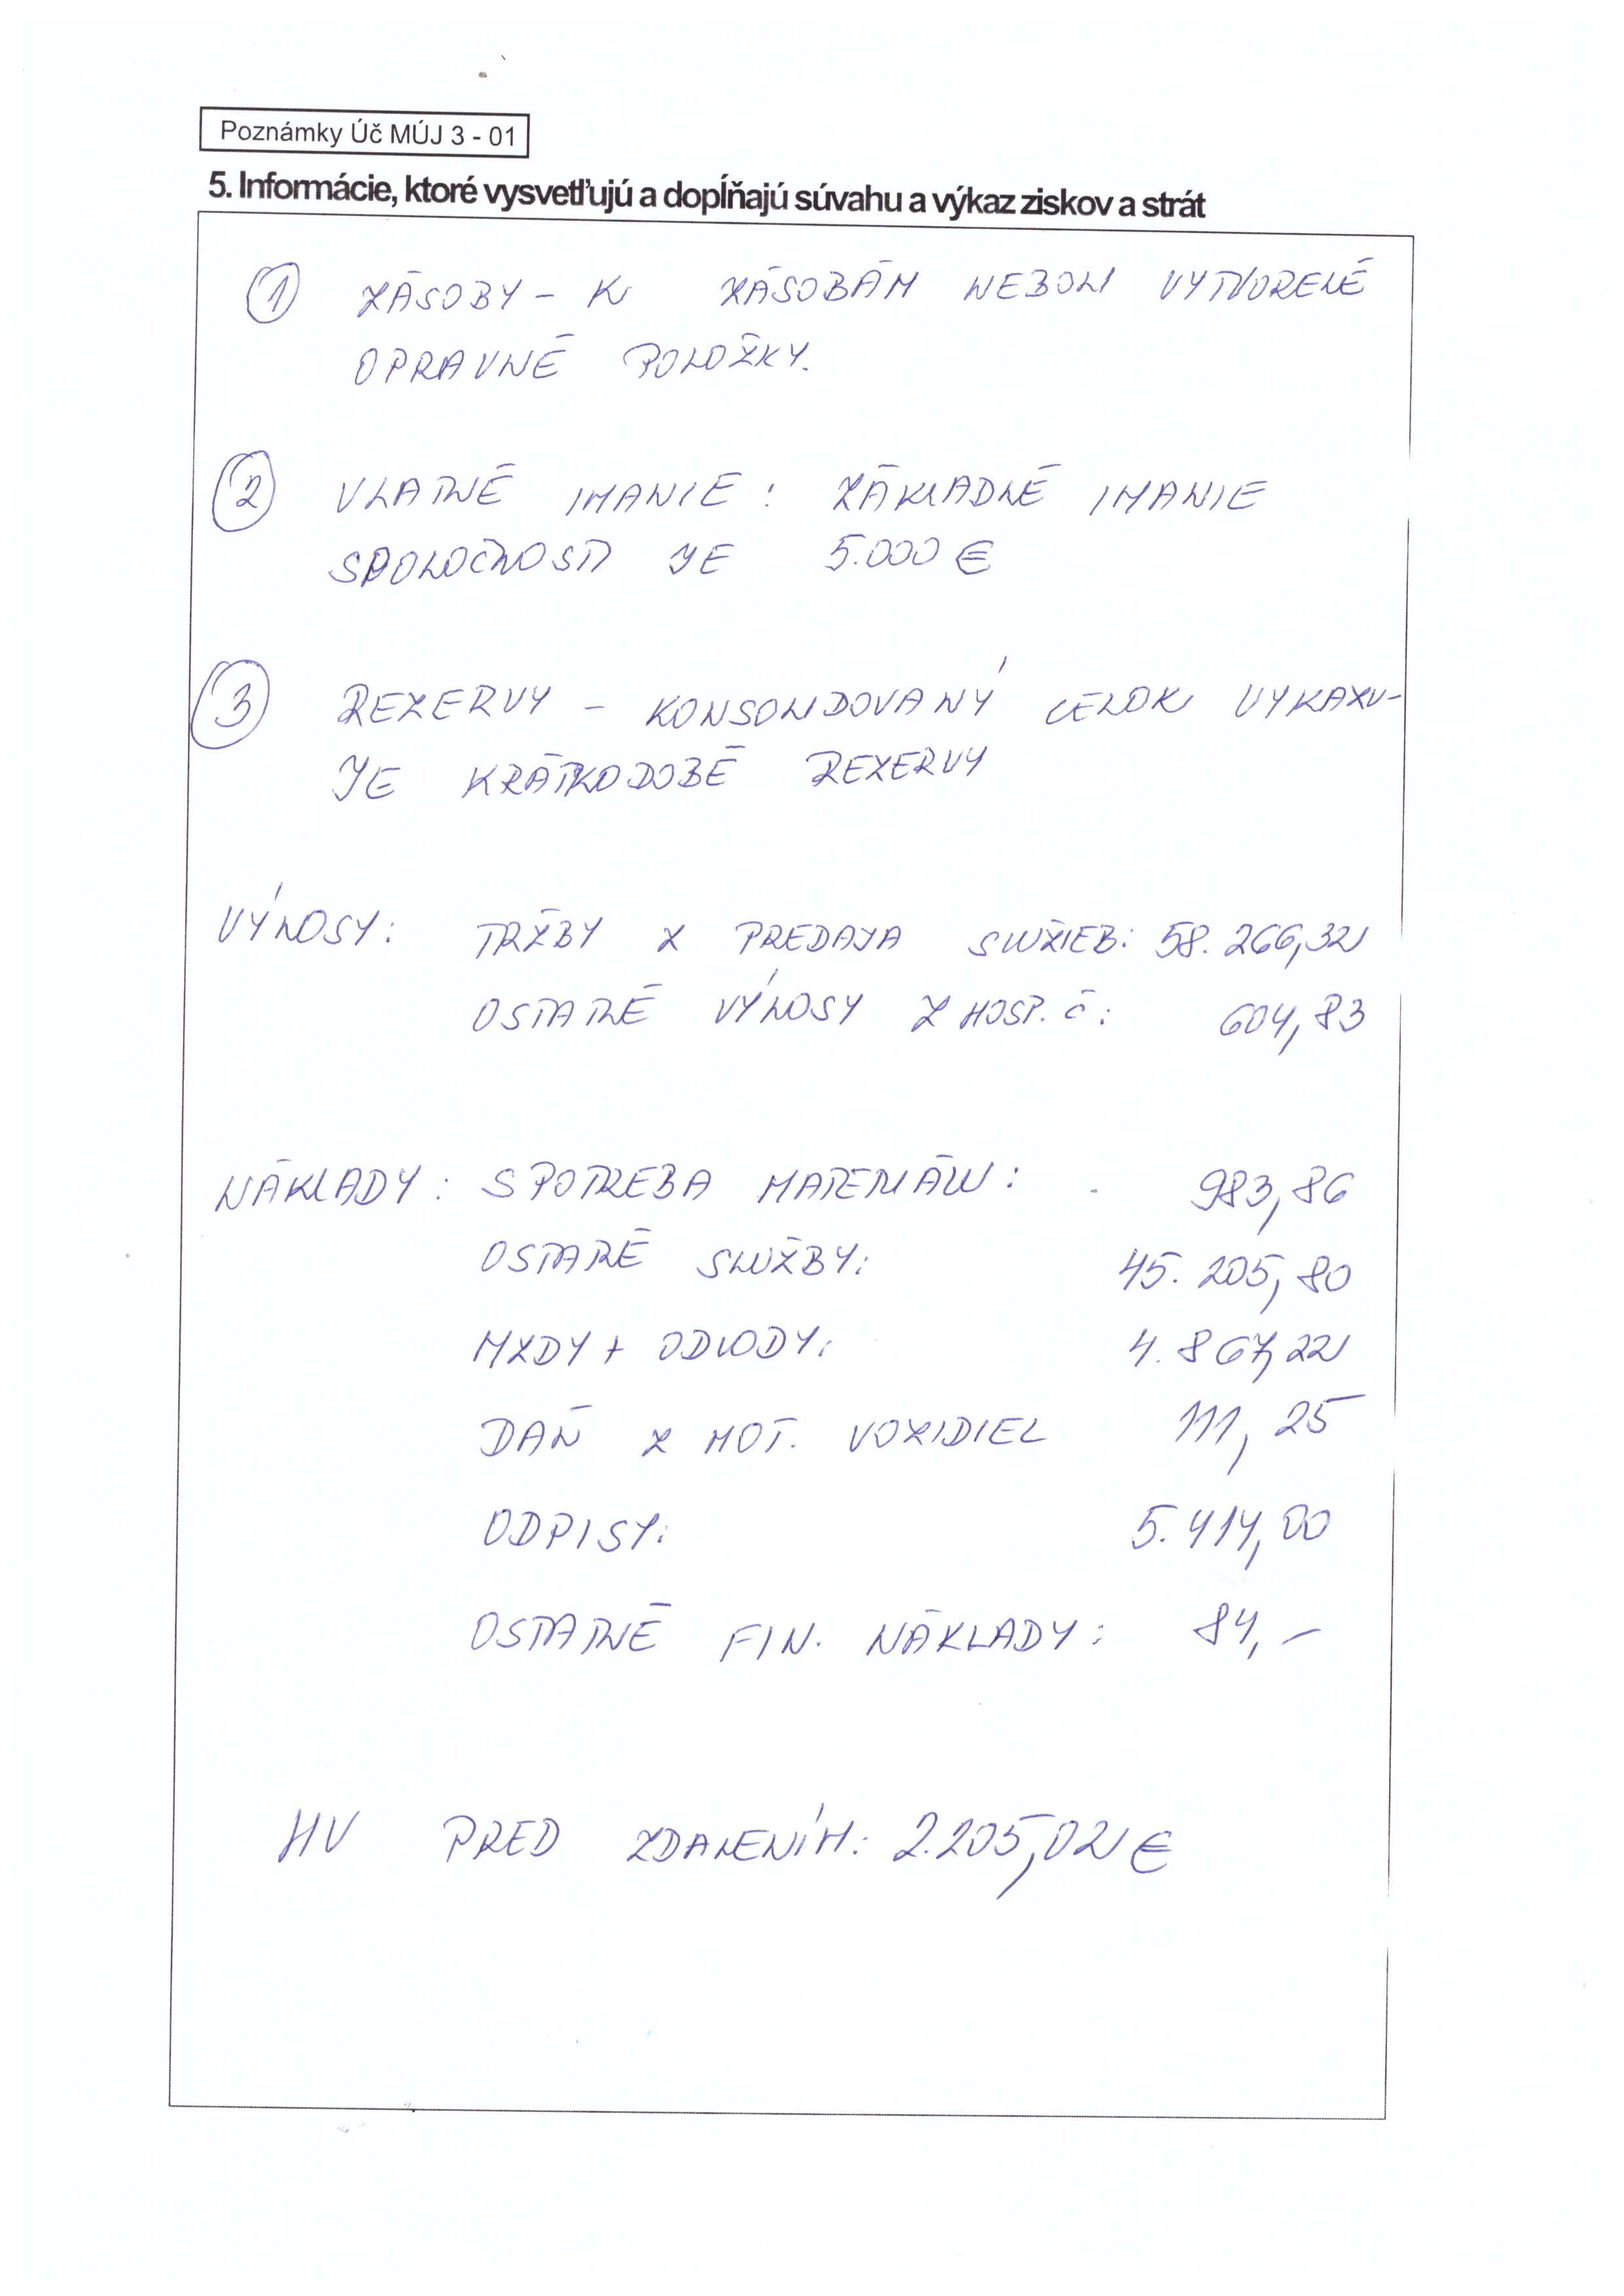 Poznámky Úč MÚJ 3 - 01
5. Informácie, ktoré vysvetľujú a dopĺňajú súvahu a výkaz ziskov a strát
1 ZÁSOBY - K ZÁSOBÁM NEBOLI VYTVORENÉ
OPRAVNÉ POLOŽKY.
2 VLATNÉ IMANIE: ZÁKLADNÉ IMANIE
SPOLOČNOSTI JE 5.000 €
3 REZERVY - KONSOLIDOVANÝ CELOK VYKAZU-
JE KRÁTKODOBÉ REZERVY
VÝNOSY: TRŽBY Z PREDAJA SLUŽIEB: 58.266,32
OSTATNÉ VÝNOSY Z HOSP. Č: 604,83
NÁKLADY: SPOTREBA MATERIÁLU: 983,86
OSTATNÉ SLUŽBY: 45.205,80
MZDY + ODVODY: 4.867,22
DAŇ Z MOT. VOZIDIEL 111,25
ODPISY: 5.414,00
OSTATNÉ FIN. NÁKLADY: 84,-
HV PRED ZDANENÍM: 2.205,02 €